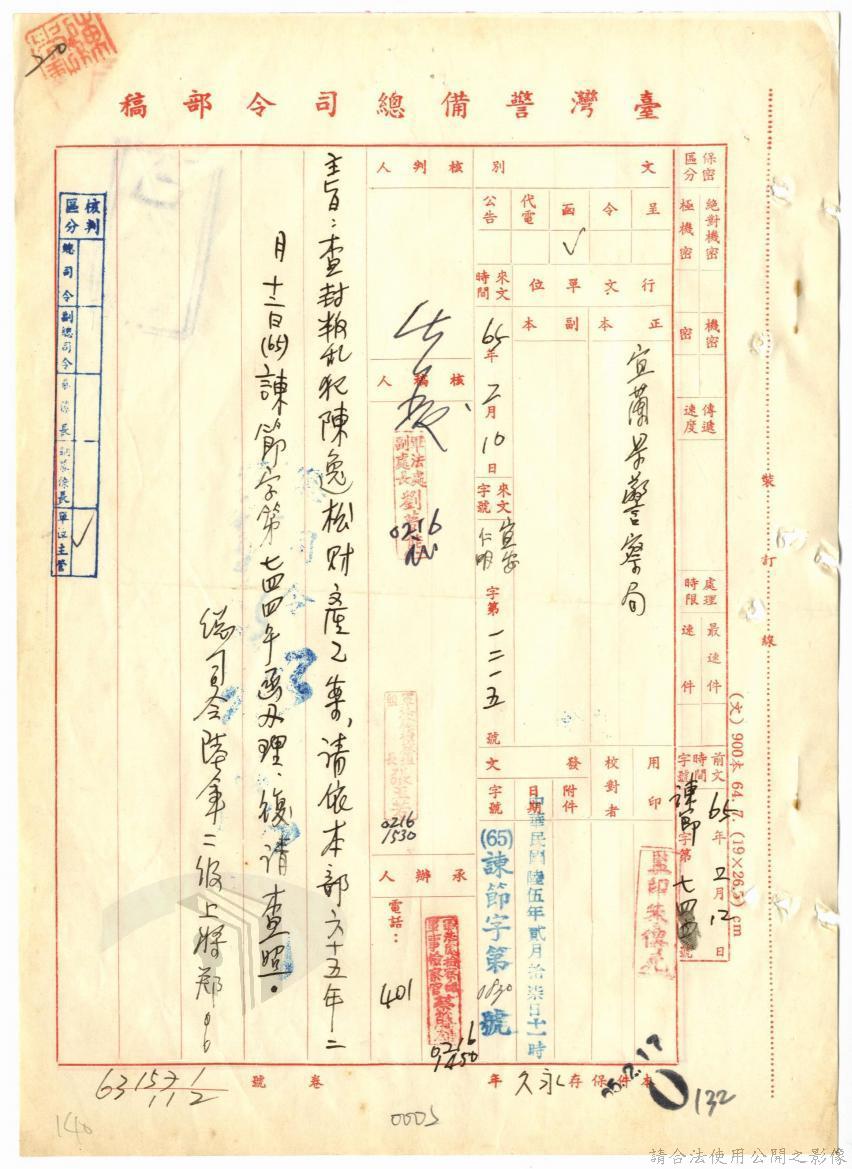 臺灣警備總司令部稿
保密區分
絕對機密
極機密
機密
密
傳遞速度
處理時限
最速件
速件
前文時間
65年2月12日
字號
諫節字第七四四號
文別
呈
令
函
代電
公告
✓
行文單位
正本
副本
宜蘭縣警察局
用印
校對者
發文
附件
日期
字號
監印
中華民國陸伍年貳月拾柒日十一時
(65)諫節字第1830號
來文時間
65年2月10日
來文字號
宜安仁明字第一二一五號
核判人
核稿人
軍法處副處長劉
0216
0216
1530
承辦人
電話：
401
0216
1450
主旨：查封叛乱犯陳逸松財產乙案，請依本部六十五年二
月十二日(65)諫節字第七四四号函办理，復請查照。
總司令陸軍二級上將鄭
核判區分
總司令
副總司令
參謀長
副參謀長
單位主管
✓
裝訂線
(文) 900本 64. 7. (19×26.5) cm
本件保存永久年
卷號
132
0005
140
請合法使用公開之影像